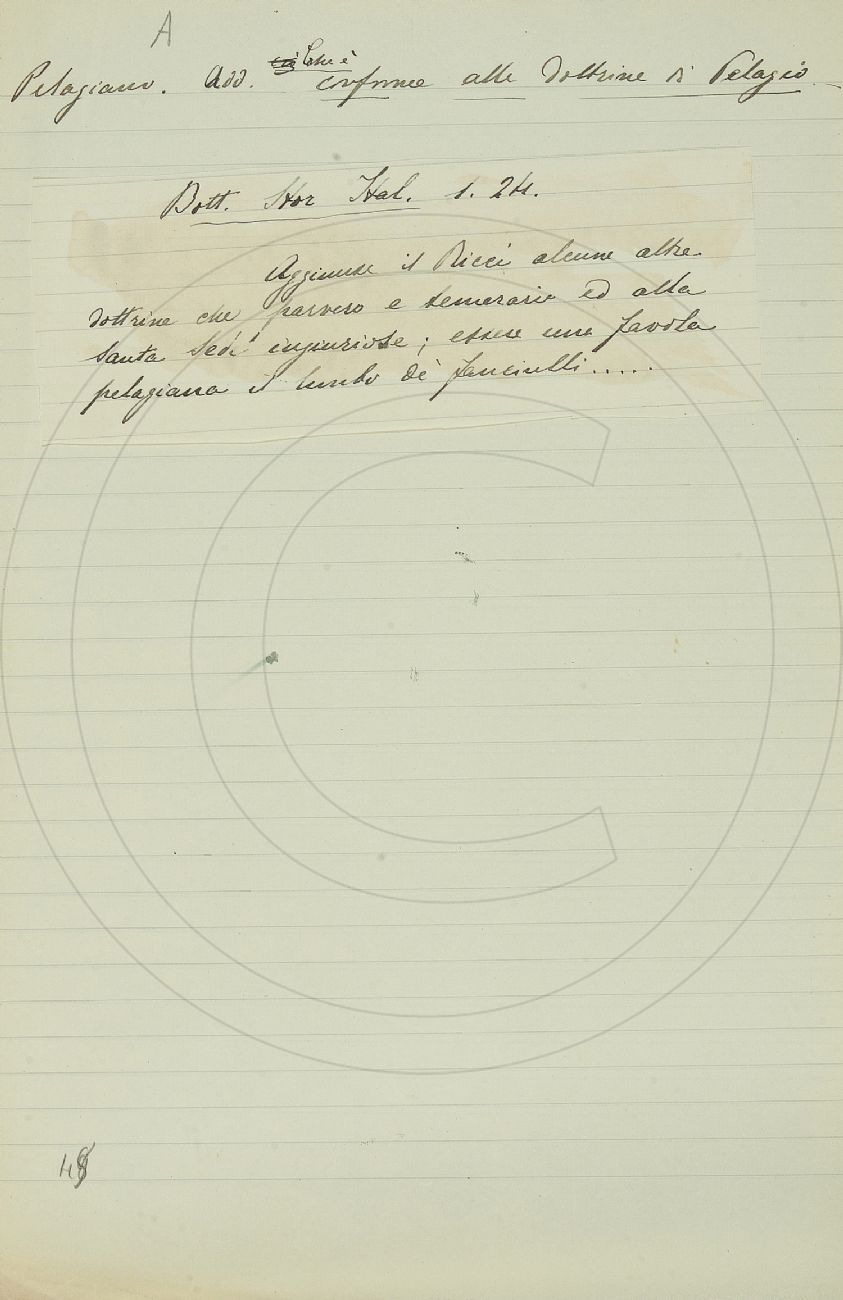 A
Che è
Pelagiano. Add. conforme alle dottrine di Pelagio.
Bott. Stor Ital. 1. 24.
Aggiunse il Ricci alcune altre
dottrine che parvero e temerarie ed alla
Santa Sede ingiuriose; essere una favola
pelagiana il limbo de' fanciulli.....
48